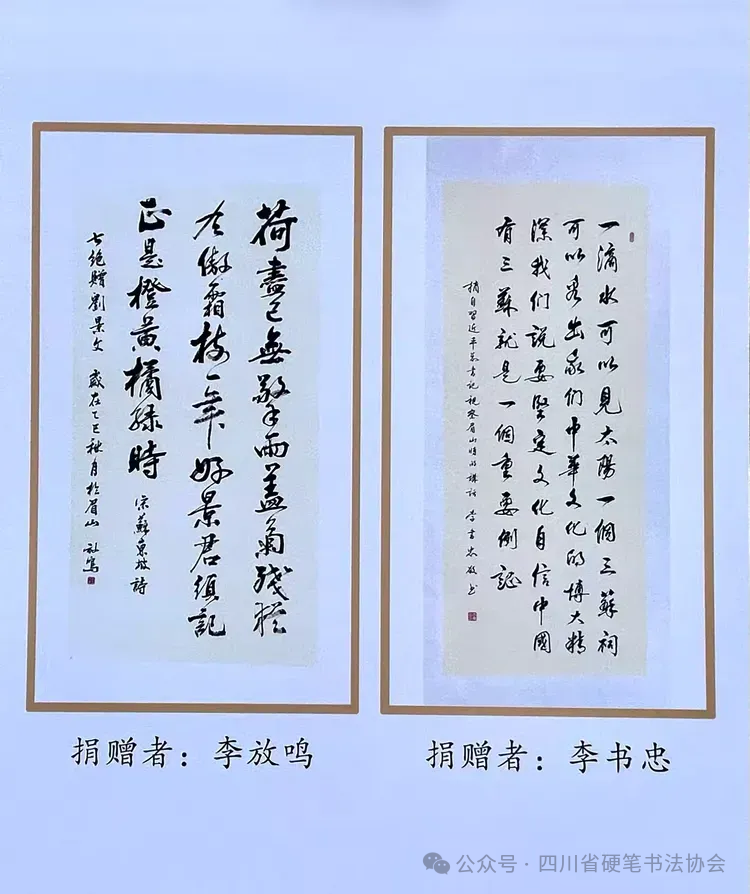 荷盡已無擎雨蓋菊殘猶
有傲霜枝一年好景君須記
正是橙黄橘緑時 宋蘇東坡詩
七絕贈劉景文 歲在乙巳秋月於眉山 放鳴
一滴水可以見太陽一個三蘇祠
可以看出我们中華文化的博大精
深我们說要堅定文化自信中國
有三蘇就是一個重要例証
摘自習近平总書記視察眉山時的講話 李書忠敬書
捐赠者：李放鸣
捐赠者：李书忠
公众号·四川省硬笔书法协会